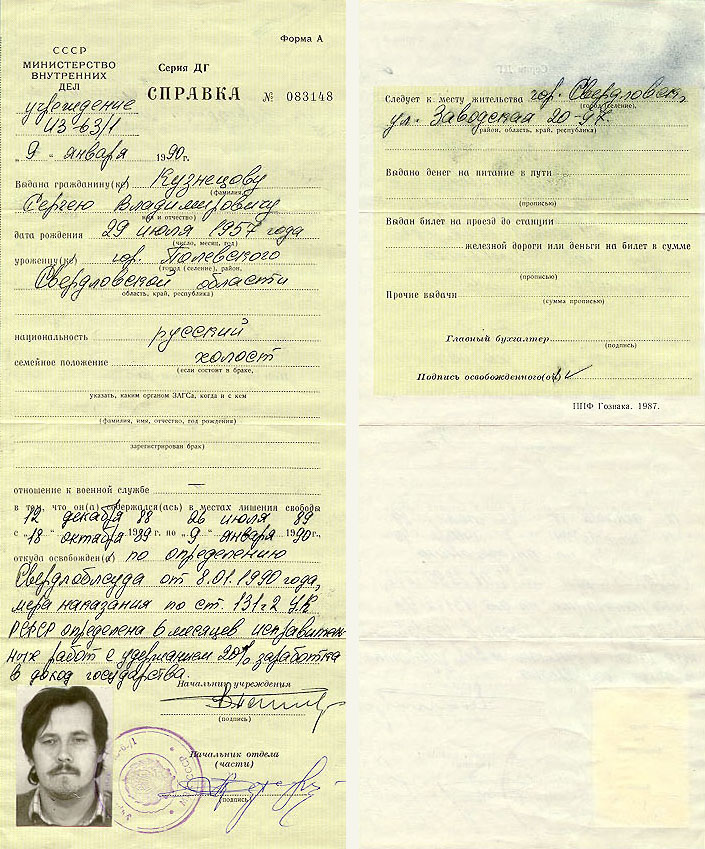 Форма А
СССР
МИНИСТЕРСТВО
ВНУТРЕННИХ
ДЕЛ
Серия ДГ
СПРАВКА № 083148
учреждение
ИЗ-63/1
„ 9 “ января 1990 г.
Выдана гражданину(ке) Кузнецову
(фамилия,
Сергею Владимировичу
имя и отчество)
дата рождения 29 июля 1957 года
(число, месяц, год)
уроженцу(ке) гор. Полевского
(город (селение), район,
Свердловской области
область, край, республика)
национальность русский
семейное положение холост
(если состоит в браке,
указать, каким органом ЗАГСа, когда и с кем
(фамилия, имя, отчество, год рождения)
зарегистрирован брак)
отношение к военной службе —
в том, что он(а) содержался(ась) в местах лишения свободы
12 декабря 88 26 июля 89
с „18“ октября 1989 г. по „ 9 “ января 1990 г.
откуда освобожден(а) по определению
Свердлоблсуда от 8.01.1990 года,
мера наказания по ст. 131 ч 2 УК
РСФСР определена 6 месяцев исправитель
ных работ с удержанием 20% заработка
в доход государства.
Начальник учреждения
(подпись)
Начальник отдела
(части)
(подпись)
Серия ДГ
Следует к месту жительства гор. Свердловск,
(город (селение),
ул. Заводская 20-97.
район, область, край, республика)
Выдано денег на питание в пути
(прописью)
Выдан билет на проезд до станции
железной дороги или деньги на билет в сумме
(прописью)
Прочие выдачи
(сумма прописью)
Главный бухгалтер
(подпись)
Подпись освобожденного(ой)
ППФ Гознака. 1987.